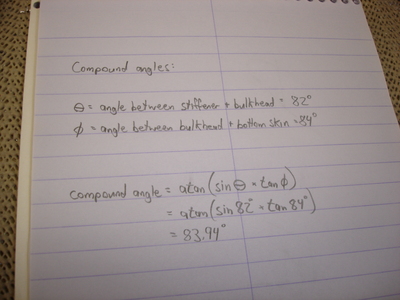 Compound angles:
θ = angle between stiffener + bulkhead = 82°
φ = angle between bulkhead + bottom skin = 84°
compound angle = atan(sin θ * tan φ)
= atan(sin 82° * tan 84°)
= 83.94°